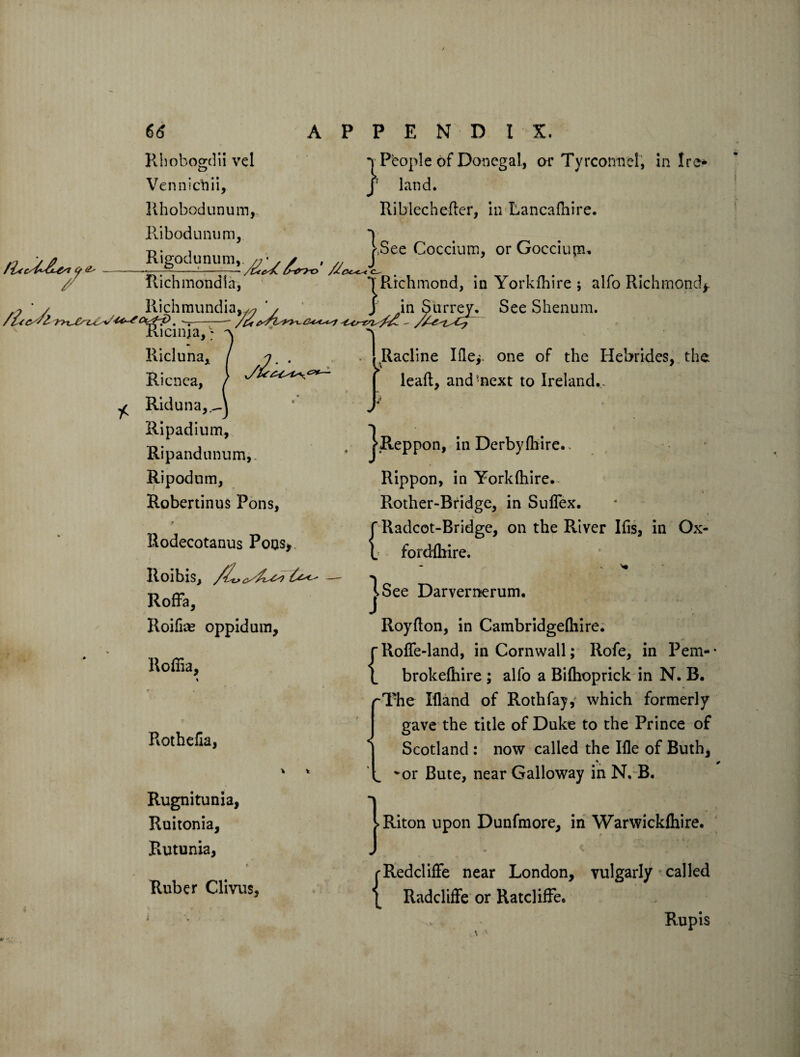 66 APPENDIX.
Rhobogdii vel } People of Donegal, or Tyrconnel, in Ire-
Vennicnii, } land.
Rhobodunum, Riblecheſter, in Lancaſhire.
Ribodunum, }
Rigodunum, } See Coccium, or Goccium.
Richmondia, } Richmond, in Yorkſhire; alſo Richmond,
Richmundia, } in Surrey. See Shenum.
Ricinia, }
Ricluna, } Racline Iſle, one of the Hebrides, the
Ricnea, } leaſt, and next to Ireland.
Riduna, }
Ripadium, }
Ripandunum, } Reppon, in Derbyſhire.
Ripodum, Rippon, in Yorkſhire.
Robertinus Pons, Rother-Bridge, in Suſſex.
Rodecotanus Pons, { Radcot-Bridge, on the River Iſis, in Ox-
fordſhire.
Roibis, }
Roffa, } See Darvernerum.
Roiſiæ oppidum, Royſton, in Cambridgeſhire.
Roſſia, { Roſſe-land, in Cornwall; Roſe, in Pem-
brokeſhire; alſo a Biſhoprick in N. B.
{ The Iſland of Rothſay, which formerly
gave the title of Duke to the Prince of
Rotheſia, Scotland: now called the Iſle of Buth,
or Bute, near Galloway in N. B.
Rugnitunia, }
Ruitonia, } Riton upon Dunſmore, in Warwickſhire.
Rutunia, }
Ruber Clivus, { Redcliffe near London, vulgarly called
Radcliffe or Ratcliffe.
Rupis